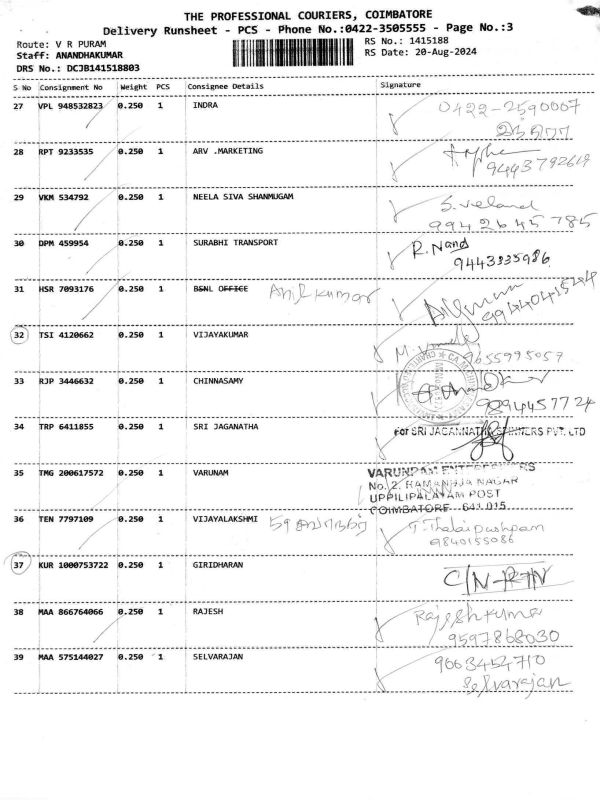 THE PROFESSIONAL COURIERS, COIMBATORE
Delivery Runsheet - PCS - Phone No.:0422-3505555 - Page No.:3
Route: V R PURAM
RS No.: 1415188
Staff: ANANDHAKUMAR
RS Date: 20-Aug-2024
DRS No.: DCJB141518803
S No Consignment No Weight PCS Consignee Details Signature
27 VPL 948532823 0.250 1 INDRA 0422-2590007
இந்திரா
28 RPT 9233535 0.250 1 ARV .MARKETING
9443792619
29 VKM 534792 0.250 1 NEELA SIVA SHANMUGAM
9942645785
30 DPM 459954 0.250 1 SURABHI TRANSPORT R. Nand
9443335986
31 HSR 7093176 0.250 1 BSNL OFFICE Anilkumar
32 TSI 4120662 0.250 1 VIJAYAKUMAR
9655995057
33 RJP 3446632 0.250 1 CHINNASAMY
9894457724
34 TRP 6411855 0.250 1 SRI JAGANATHA For SRI JAGANNATHA SPINNERS PVT. LTD
35 TMG 200617572 0.250 1 VARUNAM
No. 2, RAMANUJA NAGAR
UPPILIPALAYAM POST
COIMBATORE 641 015
36 TEN 7797109 0.250 1 VIJAYALAKSHMI T. Thalaipushpam
9840155086
37 KUR 1000753722 0.250 1 GIRIDHARAN C/N-RTN
38 MAA 866764066 0.250 1 RAJESH Rajeshkumar
9597868030
39 MAA 575144027 0.250 1 SELVARAJAN 9663454710
Selvarajan